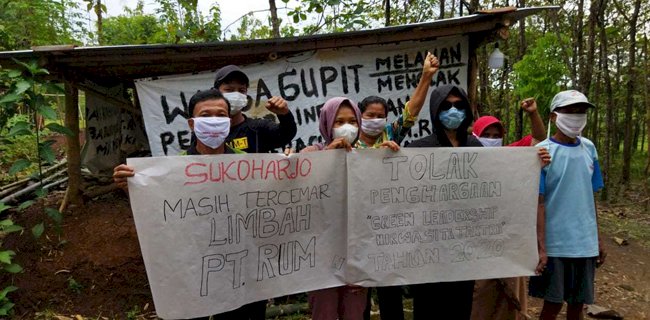 WARGA GUPIT MELAWAN
MENOLAK
SUKOHARJO
MASIH TERCEMAR
LIMBAH
PT. RUM
TOLAK
PENGHARGAAN
"GREEN LEADERSHIP
NIRWASITA TANTRA"
TAHUN 2020